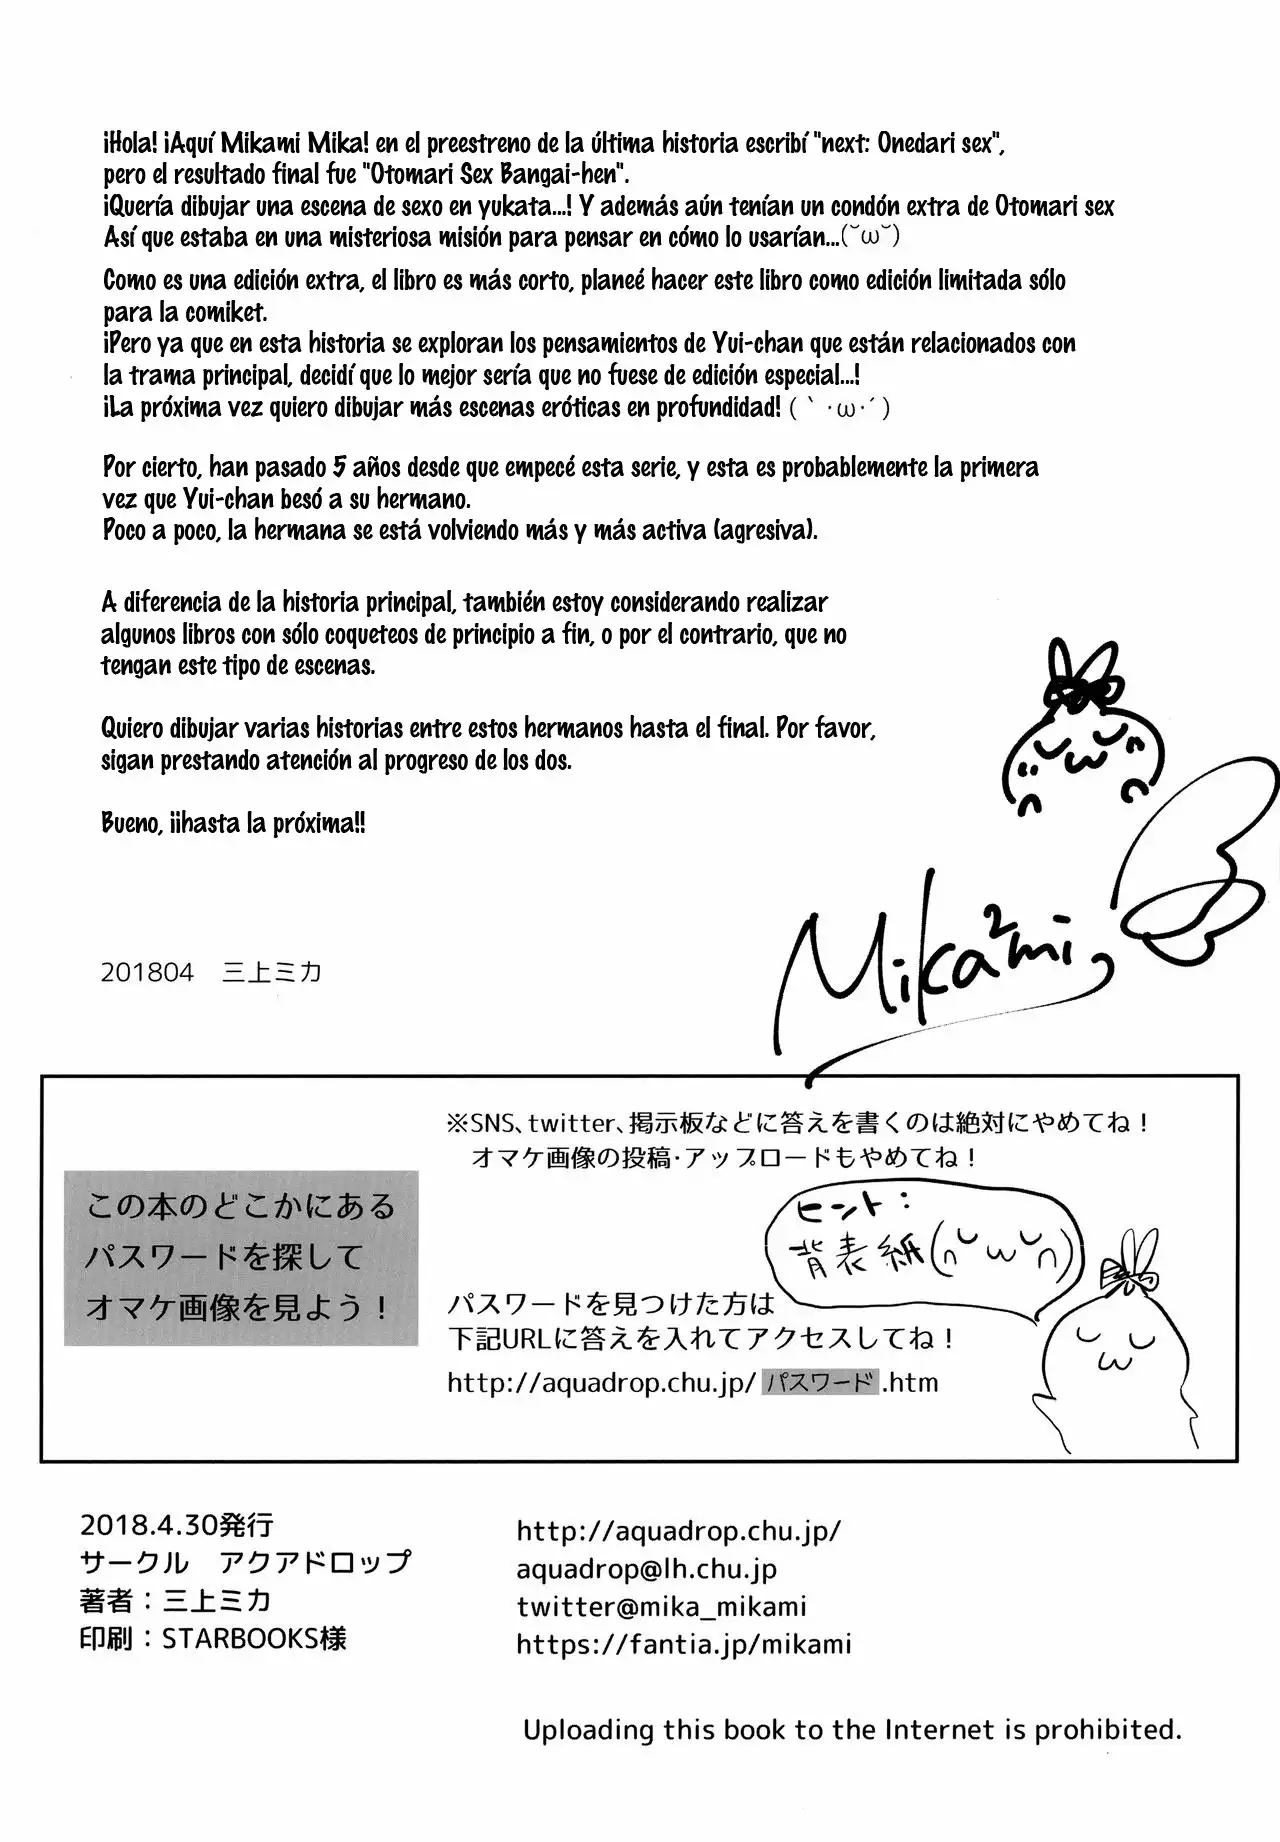 ¡Hola! ¡Aquí Mikami Mika! en el preestreno de la última historia escribí "next: Onedari sex",
pero el resultado final fue "Otomari Sex Bangai-hen".
¡Quería dibujar una escena de sexo en yukata...! Y además aún tenían un condón extra de Otomari sex
Así que estaba en una misteriosa misión para pensar en cómo lo usarían...(˘ω˘)
Como es una edición extra, el libro es más corto, planeé hacer este libro como edición limitada sólo
para la comiket.
¡Pero ya que en esta historia se exploran los pensamientos de Yui-chan que están relacionados con
la trama principal, decidí que lo mejor sería que no fuese de edición especial...!
¡La próxima vez quiero dibujar más escenas eróticas en profundidad! (｀･ω･´)
Por cierto, han pasado 5 años desde que empecé esta serie, y esta es probablemente la primera
vez que Yui-chan besó a su hermano.
Poco a poco, la hermana se está volviendo más y más activa (agresiva).
A diferencia de la historia principal, también estoy considerando realizar
algunos libros con sólo coqueteos de principio a fin, o por el contrario, que no
tengan este tipo de escenas.
Quiero dibujar varias historias entre estos hermanos hasta el final. Por favor,
sigan prestando atención al progreso de los dos.
Bueno, ¡¡hasta la próxima!!
201804 三上ミカ
Mika²mi
※SNS、twitter、掲示板などに答えを書くのは絶対にやめてね！
オマケ画像の投稿･アップロードもやめてね！
この本のどこかにある
パスワードを探して
オマケ画像を見よう！
ヒント：
背表紙(∩˘ω˘∩)
パスワードを見つけた方は
下記URLに答えを入れてアクセスしてね！
http://aquadrop.chu.jp/パスワード.htm
2018.4.30発行
サークル　アクアドロップ
著者：三上ミカ
印刷：STARBOOKS様
http://aquadrop.chu.jp/
aquadrop@lh.chu.jp
twitter@mika_mikami
https://fantia.jp/mikami
Uploading this book to the Internet is prohibited.